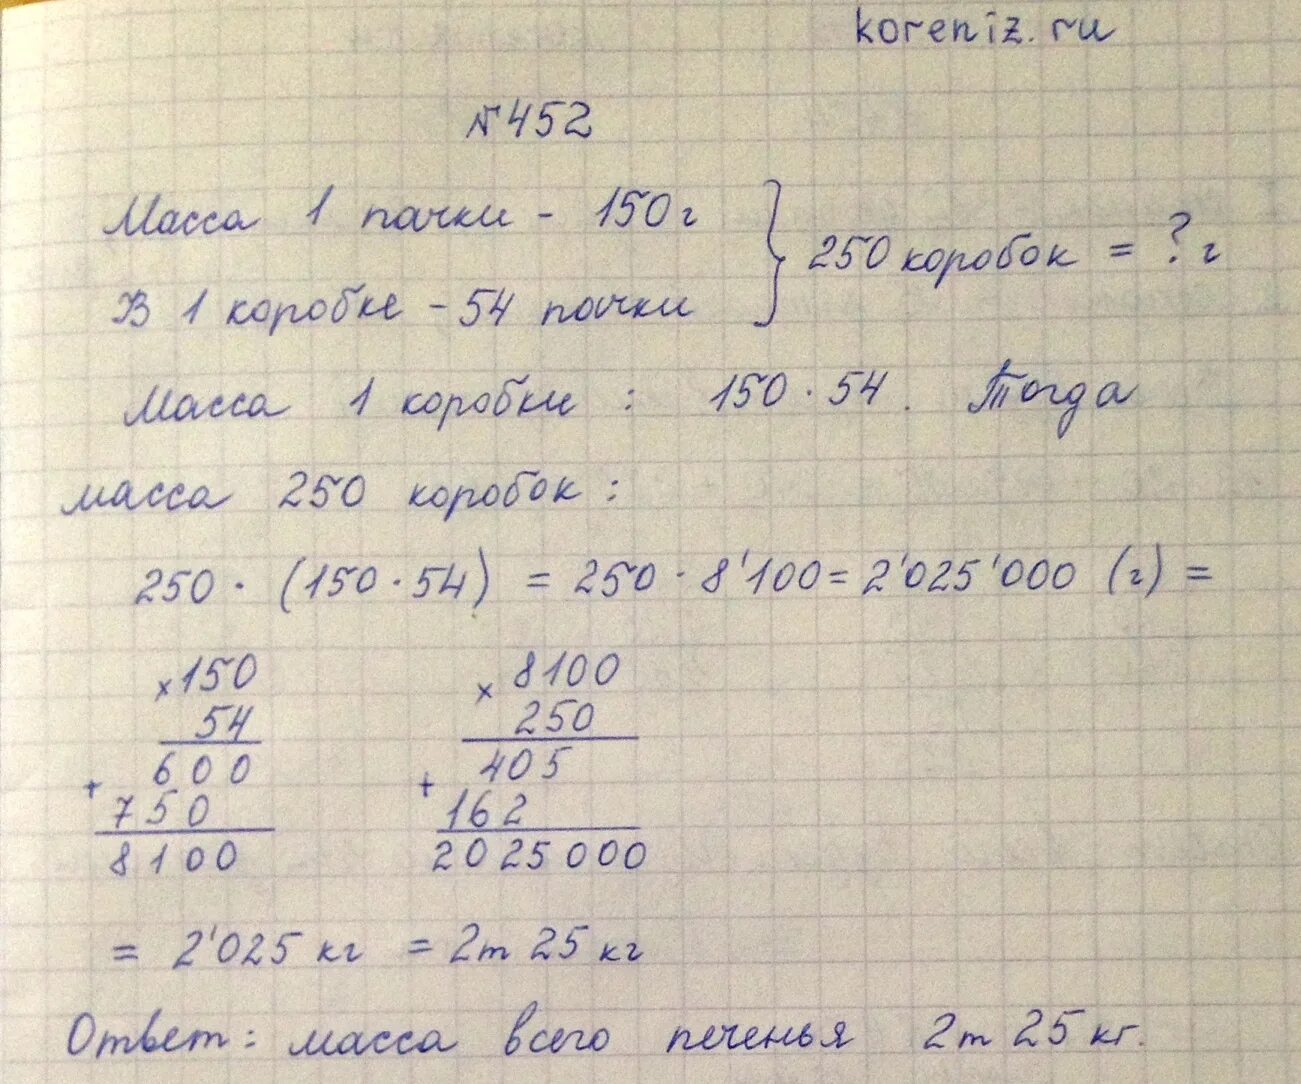 koreniz.ru
№452
Масса 1 пачки - 150 г
В 1 коробке - 54 пачки
} 250 коробок = ? г
Масса 1 коробки : 150 · 54 . Тогда
масса 250 коробок :
250 · (150 · 54) = 250 · 8'100 = 2'025'000 (г) =
× 150
54
600
+
750
8100
× 8100
250
405
+
162
2025000
= 2'025 кг = 2т 25 кг
Ответ: масса всего печенья 2т 25 кг.